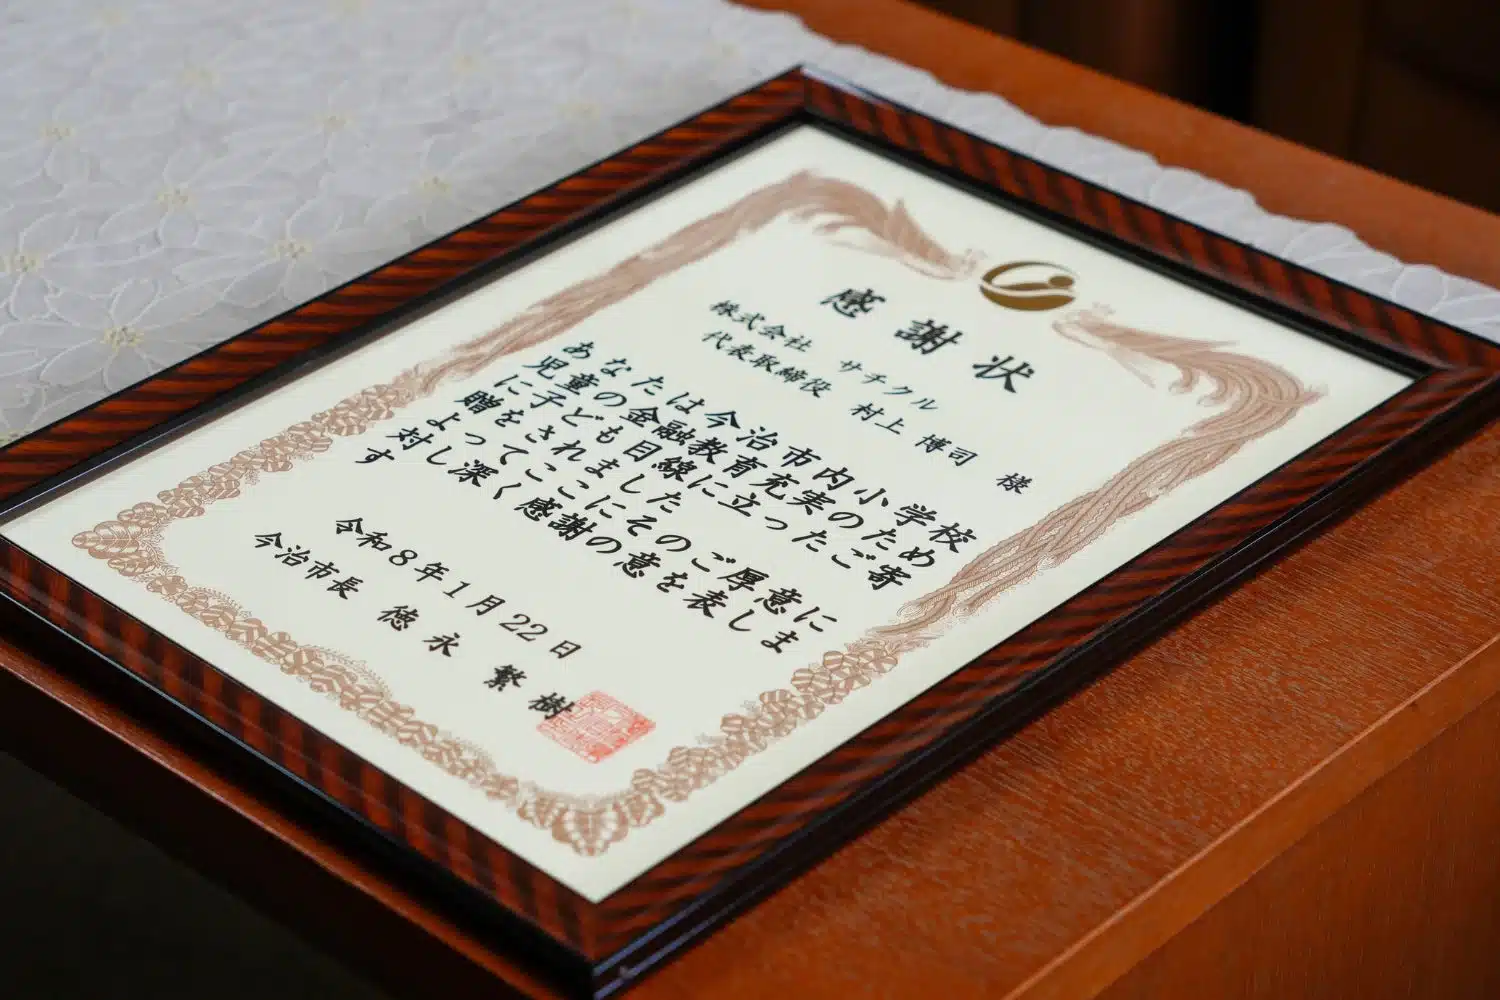 感謝状
株式会社 サチクル
代表取締役 村上 博司 様
あなたは今治市内小学校
児童の金融教育充実のため
に子ども目線に立ったご寄
贈をされました
よってここにそのご厚意に
対し深く感謝の意を表しま
す
令和8年1月22日
今治市長 徳永 繁樹